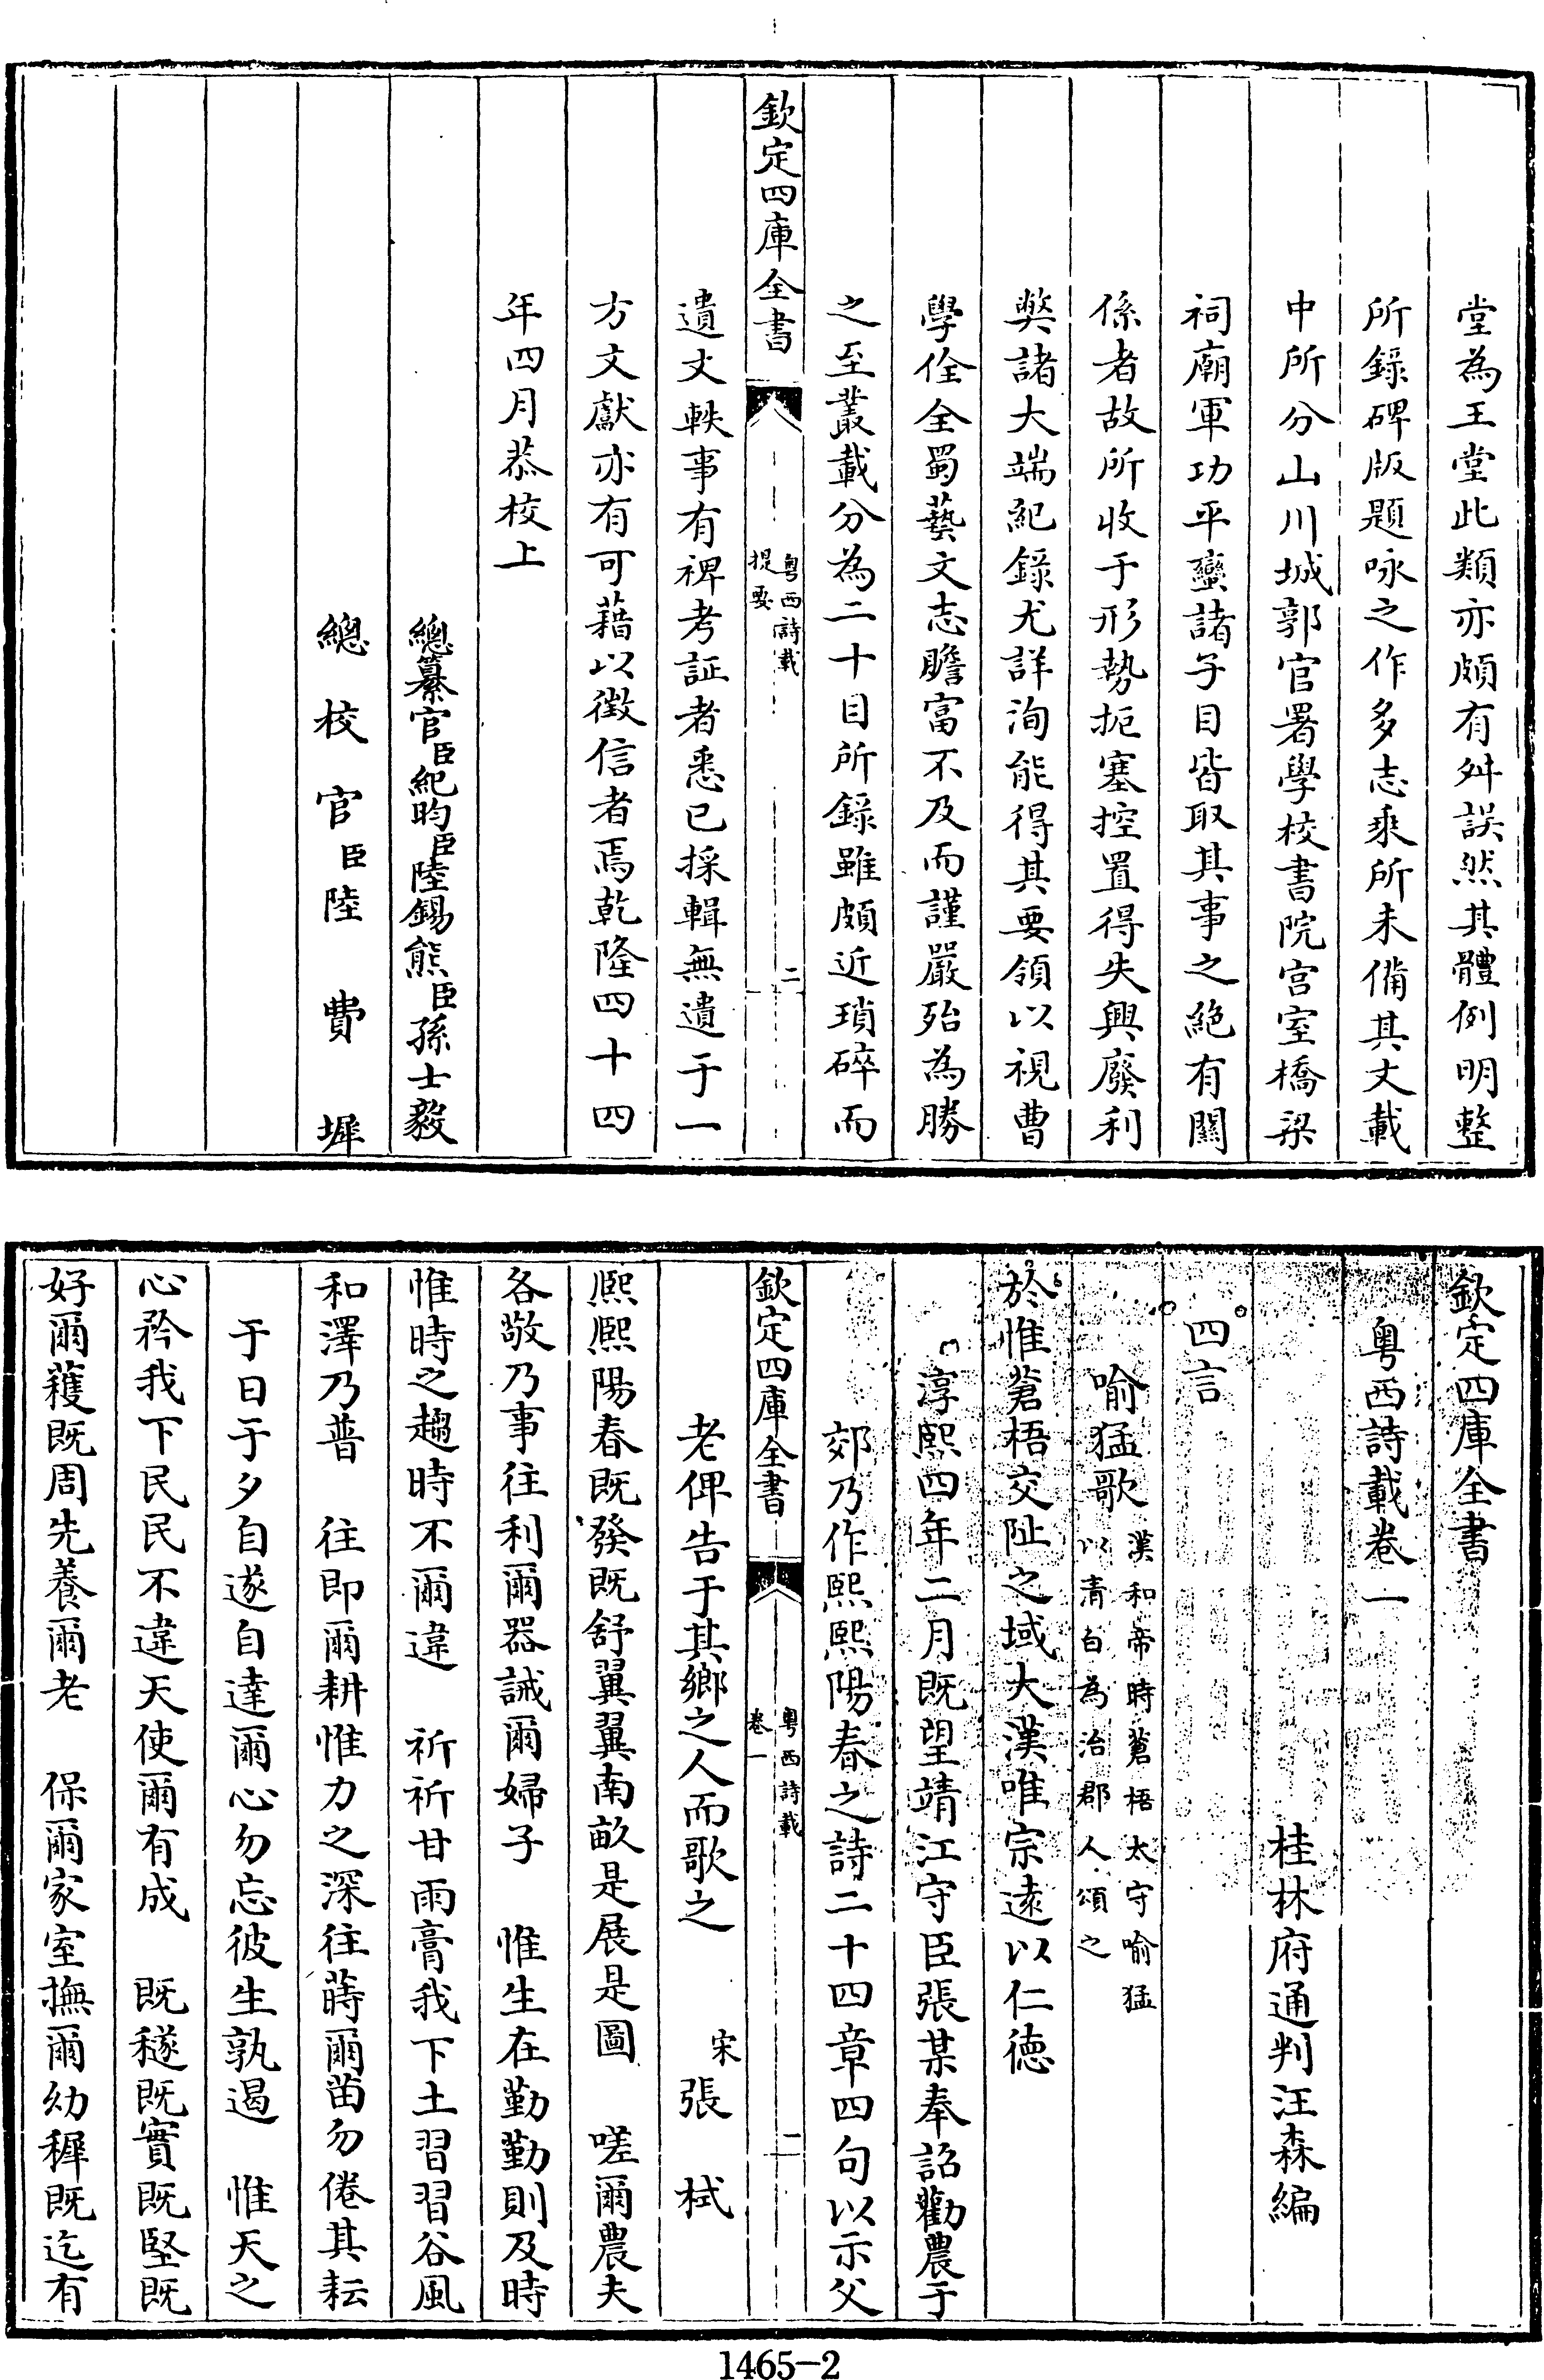 堂為王堂此類亦頗有舛誤然其體例明整
所錄碑版題咏之作多志乘所未備其文載
中所分山川城郭官署學校書院宫室橋梁
祠廟軍功平蠻諸子目皆取其事之絶有關
係者故所收于形勢扼塞控置得失興廢利
弊諸大端紀錄尤詳洵能得其要領以視曹
學佺全蜀藝文志贍富不及而謹嚴殆為勝
之至叢載分為二十目所錄雖頗近瑣碎而
欽定四庫全書
粤西詩載
提要
二
遺文軼事有裨考証者悉已採輯無遺于一
方文獻亦有可藉以徴信者焉乾隆四十四
年四月恭校上
總纂官臣紀昀臣陸錫熊臣孫士毅
總校官臣陸費墀
欽定四庫全書
粤西詩載卷一
桂林府通判汪森編
四言
喻猛歌 漢和帝時蒼梧太守喻猛
以清白為治郡人頌之
於惟蒼梧交阯之域大漢唯宗遠以仁德
淳熙四年二月既望靖江守臣張某奉詔勸農于
郊乃作熙熙陽春之詩二十四章四句以示父
欽定四庫全書
粤西詩載
卷一
一
老俾告于其鄉之人而歌之 宋張栻
熈熈陽春既發既舒翼翼南畝是展是圖 嗟爾農夫
各敬乃事往利爾器誡爾婦子 惟生在勤勤則及時
惟時之趨時不爾違 祈祈甘雨膏我下土習習谷風
和澤乃普 往即爾耕惟力之深往蒔爾苗勿倦其耘
于日于夕自遂自達爾心勿忘彼生孰遏 惟天之
心矜我下民民不違天使爾有成 既穟既實既堅既
好爾穫既周先養爾老 保爾家室撫爾幼穉既迄有
1465-2